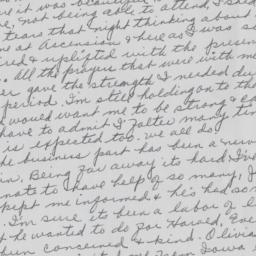 it was beautiful
not being able to attend, I shed
tears that night thinking about
as Ascension & here as I was s
& uplifted with the presen
. All the prayers that were with me
gave the strength I needed du
period. I'm still holding on to tho
would want me to be strong & ca
have to admit I falter many tim
is expected too. We all do
the business part has been a nerve
Being far away its hard. I've
to have help of so many. J
kept me informed & he's had som
I'm sure its been a labor of l
he wanted to do for Harold, Eve
been concerned & kind. Olivia
from Iowa